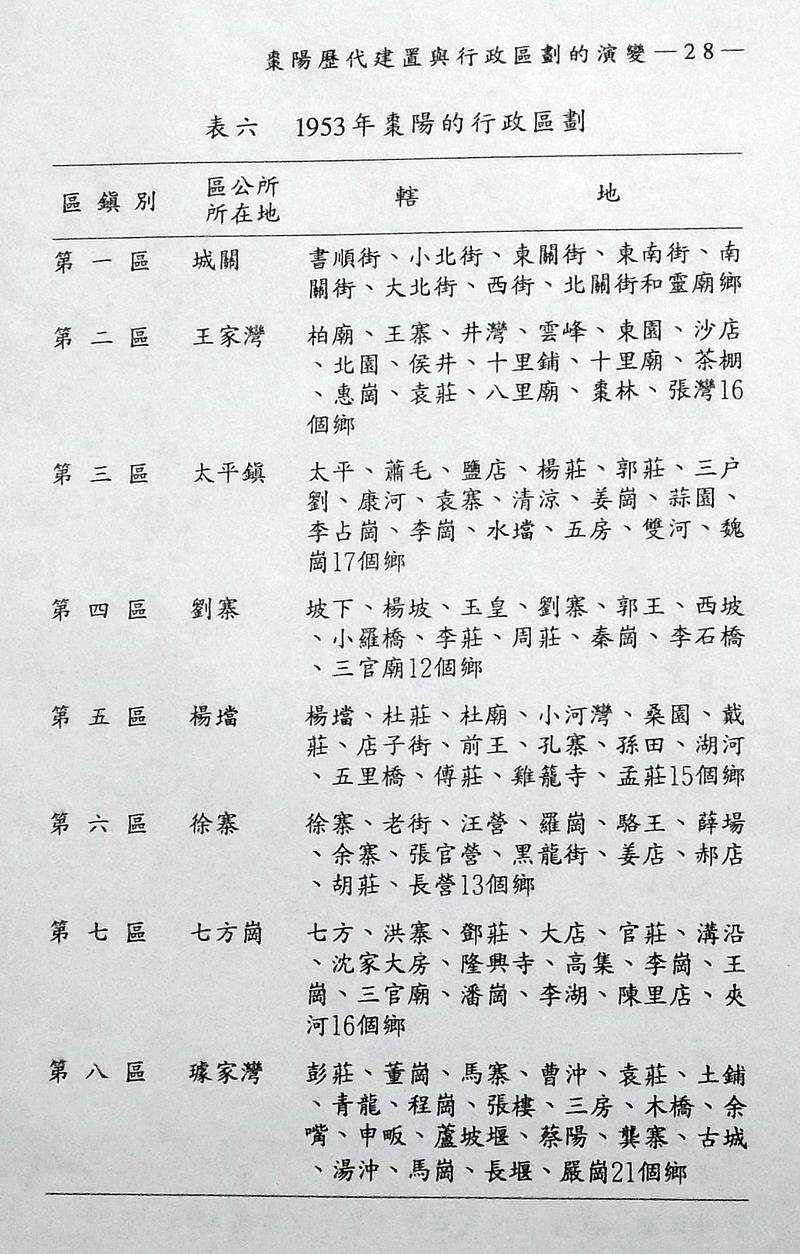 棗陽歷代建置與行政區劃的演變—28—
表六 1953年棗陽的行政區劃
區鎮別 區公所所在地 轄地
第一區 城關 書順街、小北街、東關街、東南街、南
關街、大北街、西街、北關街和靈廟鄉
第二區 王家灣 柏廟、王寨、井灣、雲峰、東園、沙店
、北園、侯井、十里鋪、十里廟、茶棚
、惠崗、袁莊、八里廟、棗林、張灣16
個鄉
第三區 太平鎮 太平、蕭毛、鹽店、楊莊、郭莊、三户
劉、康河、袁寨、清涼、姜崗、蒜園、
李占崗、李崗、水壋、五房、雙河、魏
崗17個鄉
第四區 劉寨 坡下、楊坡、玉皇、劉寨、郭王、西坡
、小羅橋、李莊、周莊、秦崗、李石橋
、三官廟12個鄉
第五區 楊壋 楊壋、杜莊、杜廟、小河灣、桑園、戴
莊、店子街、前王、孔寨、孫田、湖河
、五里橋、傅莊、雞籠寺、孟莊15個鄉
第六區 徐寨 徐寨、老街、汪營、羅崗、駱王、薛場
、余寨、張官營、黑龍街、姜店、郝店
、胡莊、長營13個鄉
第七區 七方崗 七方、洪寨、鄧莊、大店、官莊、溝沿
、沈家大房、隆興寺、高集、李崗、王
崗、三官廟、潘崗、李湖、陳里店、夾
河16個鄉
第八區 璩家灣 彭莊、董崗、馬寨、曹沖、袁莊、土鋪
、青龍、程崗、張樓、三房、木橋、余
嘴、申畈、蘆坡堰、蔡陽、龔寨、古城
、湯沖、馬崗、長堰、嚴崗21個鄉